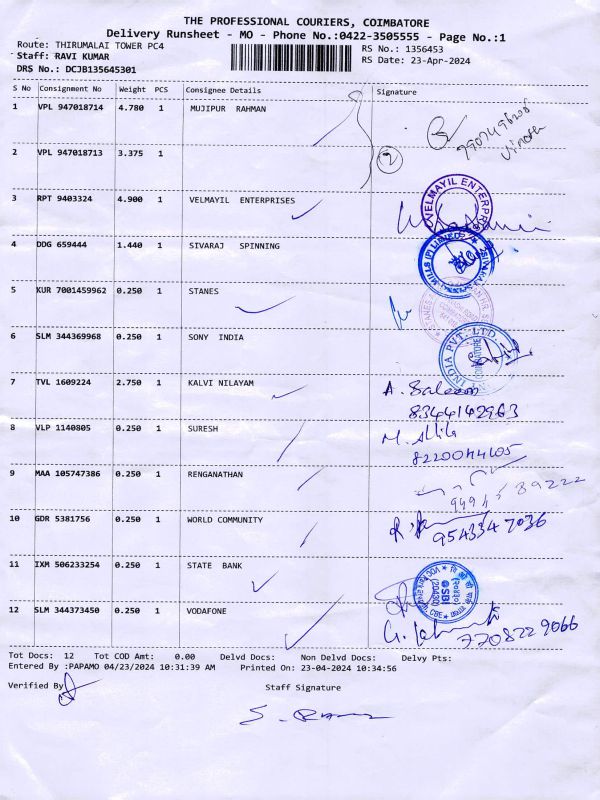 THE PROFESSIONAL COURIERS, COIMBATORE
Delivery Runsheet - MO - Phone No.:0422-3505555 - Page No.:1
Route: THIRUMALAI TOWER PC4 RS No.: 1356453
Staff: RAVI KUMAR RS Date: 23-Apr-2024
DRS No.: DCJB135645301
S No Consignment No Weight PCS Consignee Details Signature
1 VPL 947018714 4.780 1 MUJIPUR RAHMAN
2 VPL 947018713 3.375 1 2
3 RPT 9403324 4.900 1 VELMAYIL ENTERPRISES VELMAYIL ENTERPRIS
4 DDG 659444 1.440 1 SIVARAJ SPINNING MILLS (P) LIMITED
5 KUR 7001459962 0.250 1 STANES
6 SLM 344369968 0.250 1 SONY INDIA INDIA PVT. LTD. COIMBATORE
7 TVL 1609224 2.750 1 KALVI NILAYAM A. Saleem
8344142963
8 VLP 1140805 0.250 1 SURESH M.
8220044105
9 MAA 105747386 0.250 1 RENGANATHAN
10 GDR 5381756 0.250 1 WORLD COMMUNITY 9543347036
11 IXM 506233254 0.250 1 STATE BANK SBI
12 SLM 344373450 0.250 1 VODAFONE 7708229066
Tot Docs: 12 Tot COD Amt: 0.00 Delvd Docs: Non Delvd Docs: Delvy Pts:
Entered By :PAPAMO 04/23/2024 10:31:39 AM Printed On: 23-04-2024 10:34:56
Verified By
Staff Signature